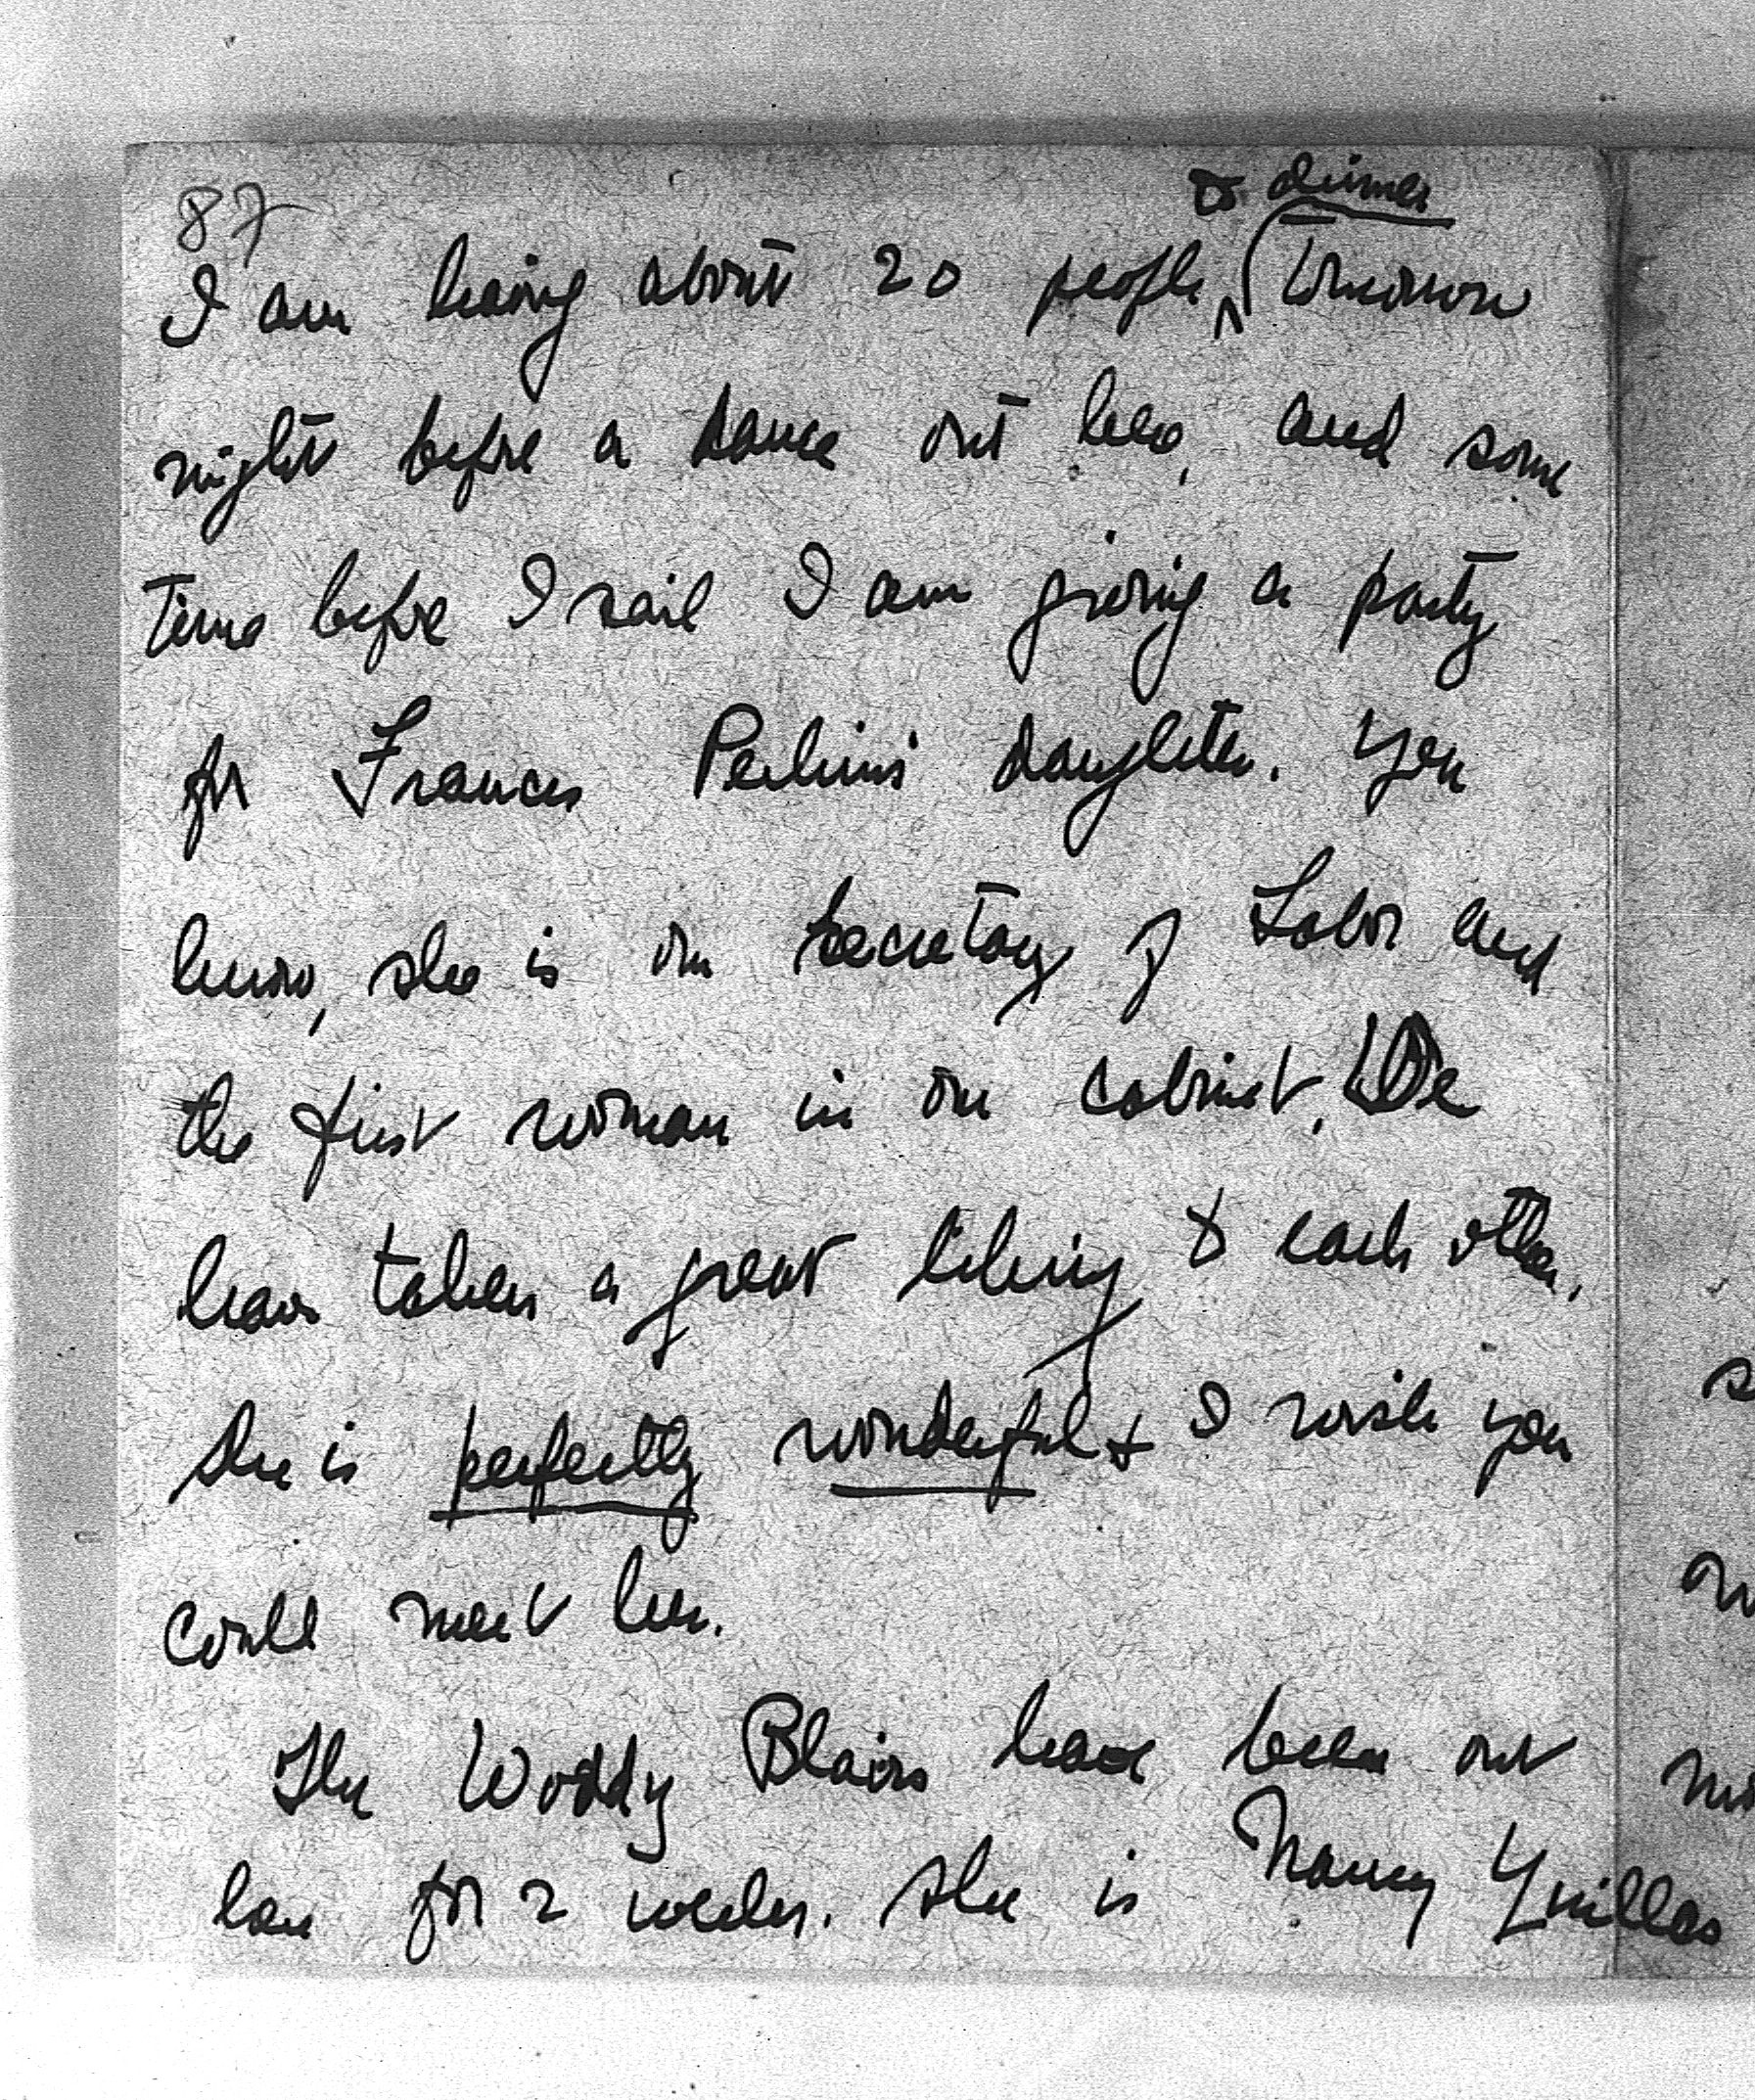 87
to dinner
I am having about 20 people tomorrow
night before a dance out here, and some
time before I sail I am giving a party
for Frances Perkins' daughter. You
know, she is our Secretary of Labor and
the first woman in our cabinet. We
have taken a great liking to each other.
She is perfectly wonderful + I wish you
could meet her.
The Woddy Blairs have been out
here for 2 weeks. She is Nancy